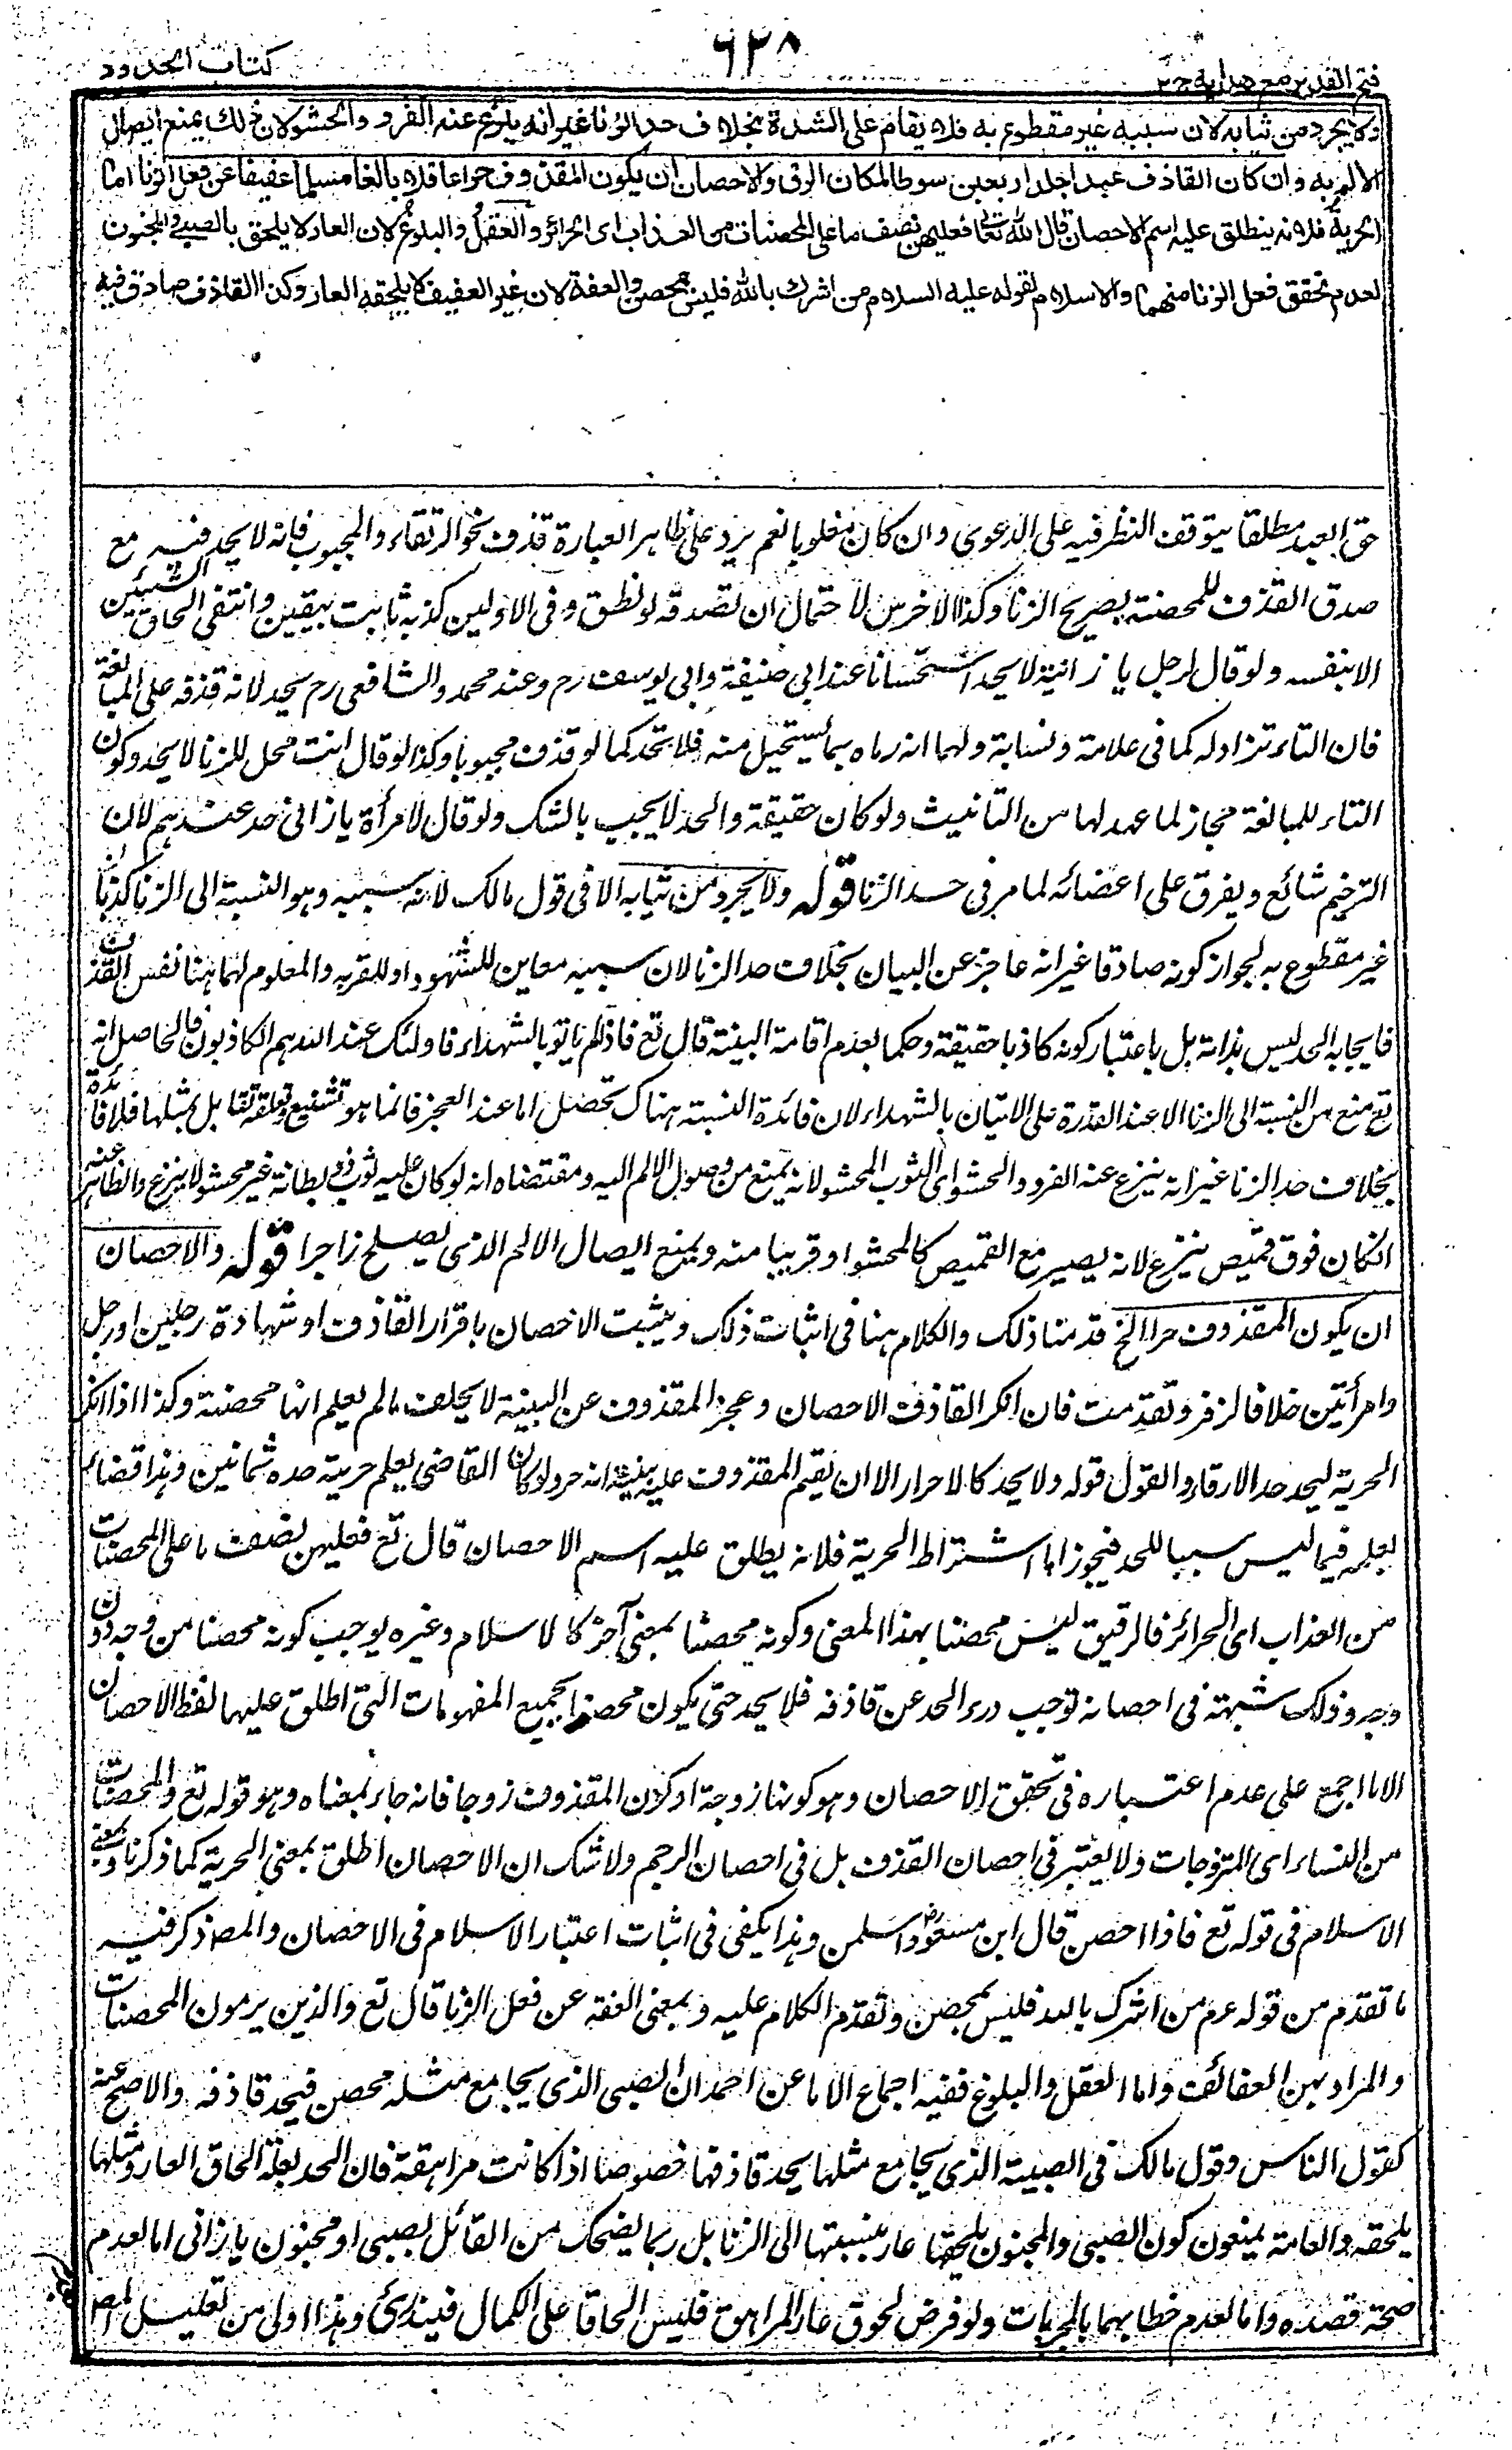 فتح القدير مع هداية ج ٢
٦٣٨
كتاب الحدود
ولا يجرد من ثيابه لان سببه غير مقطوع به فلا يقام على الشدة بخلاف حد الزنا غير انه ينزع عنه الفرو والحشو لان ذلك يمنع ايصال
الالم به وان كان القاذف عبدا جلد اربعين سوطا لمكان الرق والاحصان ان يكون المقذوف حرا عاقلا بالغا مسلما عفيفا عن فعل الزنا اما
الحرية فلانه ينطلق عليه اسم الاحصان قال الله تعالى فعليهن نصف ما على المحصنات من العذاب اى الحرائر والعقل والبلوغ لان العار لا يلحق بالصبي والمجنون
لعدم تحقق فعل الزنا منهما والاسلام لقوله عليه السلام من اشرك بالله فليس بمحصن والعفة لان غير العفيف لا يلحقه العار وكذا القاذف صادق فيه
حق العبد مطلقا يتوقف النظر فيه على الدعوى وان كان مغلوبا نعم يرد على ظاهر العبارة قذف نحو الرتقاء والمجبوب فانه لا يحد فيه مع
صدق القذف للمحصنة بصريح الزنا وكذا الاخرس لاحتمال ان تصدقه لو نطق وفى الاولين كذبه ثابت بيقين وانتفى الحاق الشين
الا بنفسه ولو قال لرجل يا زانية لا يحد استحسانا عند ابى حنيفة وابى يوسف رح وعند محمد والشافعى رح يحد لانه قذفه على المبالغة
فان التاء تزاد له كما فى علامة ونسابة ولهما انه رماه بما يستحيل منه فلا يحد كما لو قذف مجبوبا وكذا لو قال انت محل للزنا لا يحد وكون
التاء للمبالغة مجاز لما عهد لها من التانيث ولو كان حقيقة والحد لا يجب بالشك ولو قال لامرأة يا زانى حد عندهم لان
الترخيم شائع ويفرق على اعضائه لما مر فى حد الزنا قوله ولا يجرد من ثيابه الا فى قول مالك لانه سببه وهو النسبة الى الزنا كذبا
غير مقطوع به لجواز كونه صادقا غير انه عاجز عن البيان بخلاف حد الزنا لان سببه معاين للشهود او للمقر به والمعلوم لهما هنا نفس القذف
فايجابه الحد ليس بذاته بل باعتبار كونه كاذبا حقيقة وحكما بعدم اقامة البينة قال تع فاذ لم ياتوا بالشهداء فاولئك عند الله هم الكاذبون فالحاصل انه
تع منع من النسبة الى الزنا الا عند القدرة على الاتيان بالشهداء لان فائدة النسبة هناك تحصل اما عند العجز فانما هو تشنيع ولقلقة تقابل بمثلها فلا فائدة
بخلاف حد الزنا غير انه ينزع عنه الفرو والحشو اى الثوب المحشو لانه يمنع من وصول الالم اليه ومقتضاه انه لو كان عليه ثوب ذو بطانة غير محشو لا ينزع والظاهر عنه
ان كان فوق قميص ينزع لانه يصير مع القميص كالمحشو او قريبا منه ويمنع ايصال الالم الذى يصلح زاجرا قوله والاحصان
ان يكون المقذوف حرا الخ قدمنا ذلك والكلام هنا فى اثبات ذلك ويثبت الاحصان باقرار القاذف او شهادة رجلين او رجل
وامرأتين خلافا لزفر وتقدمت فان انكر القاذف الاحصان وعجز المقذوف عن البينة لا يحلف ما لم يعلم انها محصنة وكذا اذا انكر
الحرية ليحد حد الارقاء والقول قوله ولا يحد كالاحرار الا ان يقيم المقذوف عليه بينة انه حر ولو كان القاضى يعلم حريته حده ثمانين وهذا قضاء
بعلمه فيما ليس سببا للحد فيجوز اما اشتراط الحرية فلانه يطلق عليه اسم الاحصان قال تع فعليهن نصف ما على المحصنات
من العذاب اى الحرائر فالرقيق ليس محصنا بهذا المعنى وكونه محصنا بمعنى آخر كالاسلام وغيره يوجب كونه محصنا من وجه دون
وجه وذلك شبهة فى احصانه توجب درء الحد عن قاذفه فلا يحد حتى يكون محصنا بجميع المفهومات التى اطلق عليها لفظ الاحصان
الا ما اجمع على عدم اعتباره فى تحقق الاحصان وهو كونها زوجة او كون المقذوف زوجا فانه جاء بمعناه وهو قوله تع والمحصنات
من النساء اى المتزوجات ولا يعتبر فى احصان القذف بل فى احصان الرجم ولا شك ان الاحصان اطلق بمعنى الحرية كما ذكرنا وبمعنى
الاسلام فى قوله تع فاذا احصن قال ابن مسعود رض اسلمن وهذا يكفى فى اثبات اعتبار الاسلام فى الاحصان والمص ذكر فيه
ما تقدم من قوله عم من اشرك بالله فليس بمحصن وتقدم الكلام عليه وبمعنى العفة عن فعل الزنا قال تع والذين يرمون المحصنات
والمراد بهن العفائف واما العقل والبلوغ ففيه اجماع الا ما عن احمد ان الصبى الذى يجامع مثله محصن فيحد قاذفه والاصح عنه
كقول الناس وقول مالك فى الصبية الذى يجامع مثلها يحد قاذفها خصوصا اذا كانت مراهقة فان الحد بعلة الحاق العار ومثلها
يلحقه والعامة يمنعون كون الصبى والمجنون يلحقهما عار بنسبتها الى الزنا بل ربما يضحك من القائل لصبى او مجنون يا زانى اما لعدم
صحة قصده واما لعدم خطابهما بالحرمات ولو فرض لحوق عار المراهق فليس الحاقا على الكمال فيندرئ وهذا اولى من تعليل المص